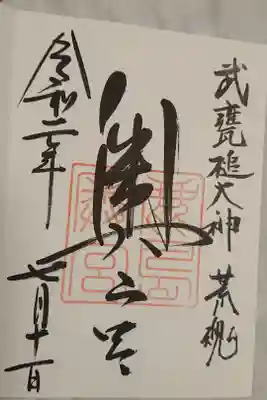 武甕槌大神 荒魂
奥宮
令和二年 七月十一日